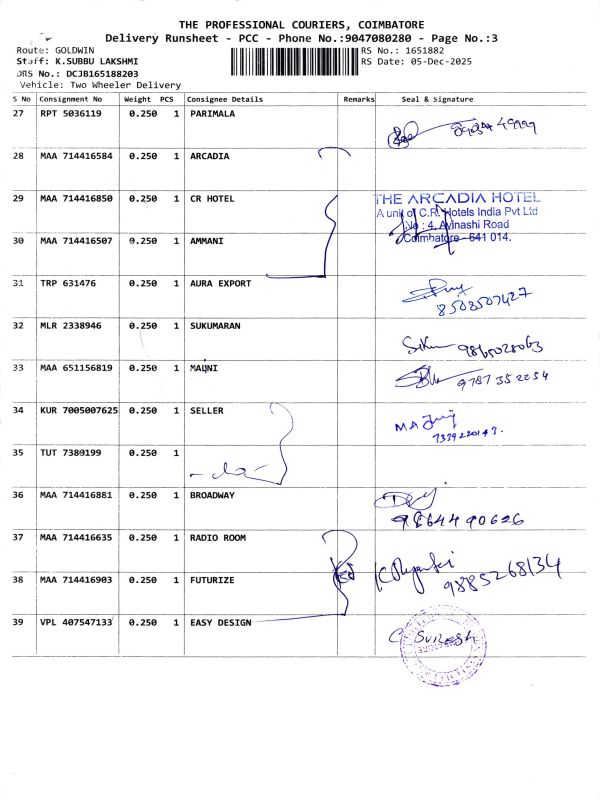 THE PROFESSIONAL COURIERS, COIMBATORE
Delivery Runsheet - PCC - Phone No.:9047080280 - Page No.:3
Route: GOLDWIN RS No.: 1651882
Staff: K.SUBBU LAKSHMI RS Date: 05-Dec-2025
DRS No.: DCJB165188203
Vehicle: Two Wheeler Delivery
S No Consignment No Weight PCS Consignee Details Remarks Seal & Signature
27 RPT 5036119 0.250 1 PARIMALA
28 MAA 714416584 0.250 1 ARCADIA
29 MAA 714416850 0.250 1 CR HOTEL THE ARCADIA HOTEL
A unit of C.R. Hotels India Pvt Ltd
No : 4, Avinashi Road
30 MAA 714416507 0.250 1 AMMANI Coimbatore - 641 014.
31 TRP 631476 0.250 1 AURA EXPORT
8508507427
32 MLR 2338946 0.250 1 SUKUMARAN
9865028063
33 MAA 651156819 0.250 1 MAUNI
9787352254
34 KUR 7005007625 0.250 1 SELLER
7339220143.
35 TUT 7380199 0.250 1
-do-
36 MAA 714416881 0.250 1 BROADWAY
9864490626
37 MAA 714416635 0.250 1 RADIO ROOM
38 MAA 714416903 0.250 1 FUTURIZE 9885268134
39 VPL 407547133 0.250 1 EASY DESIGN
C SURESH